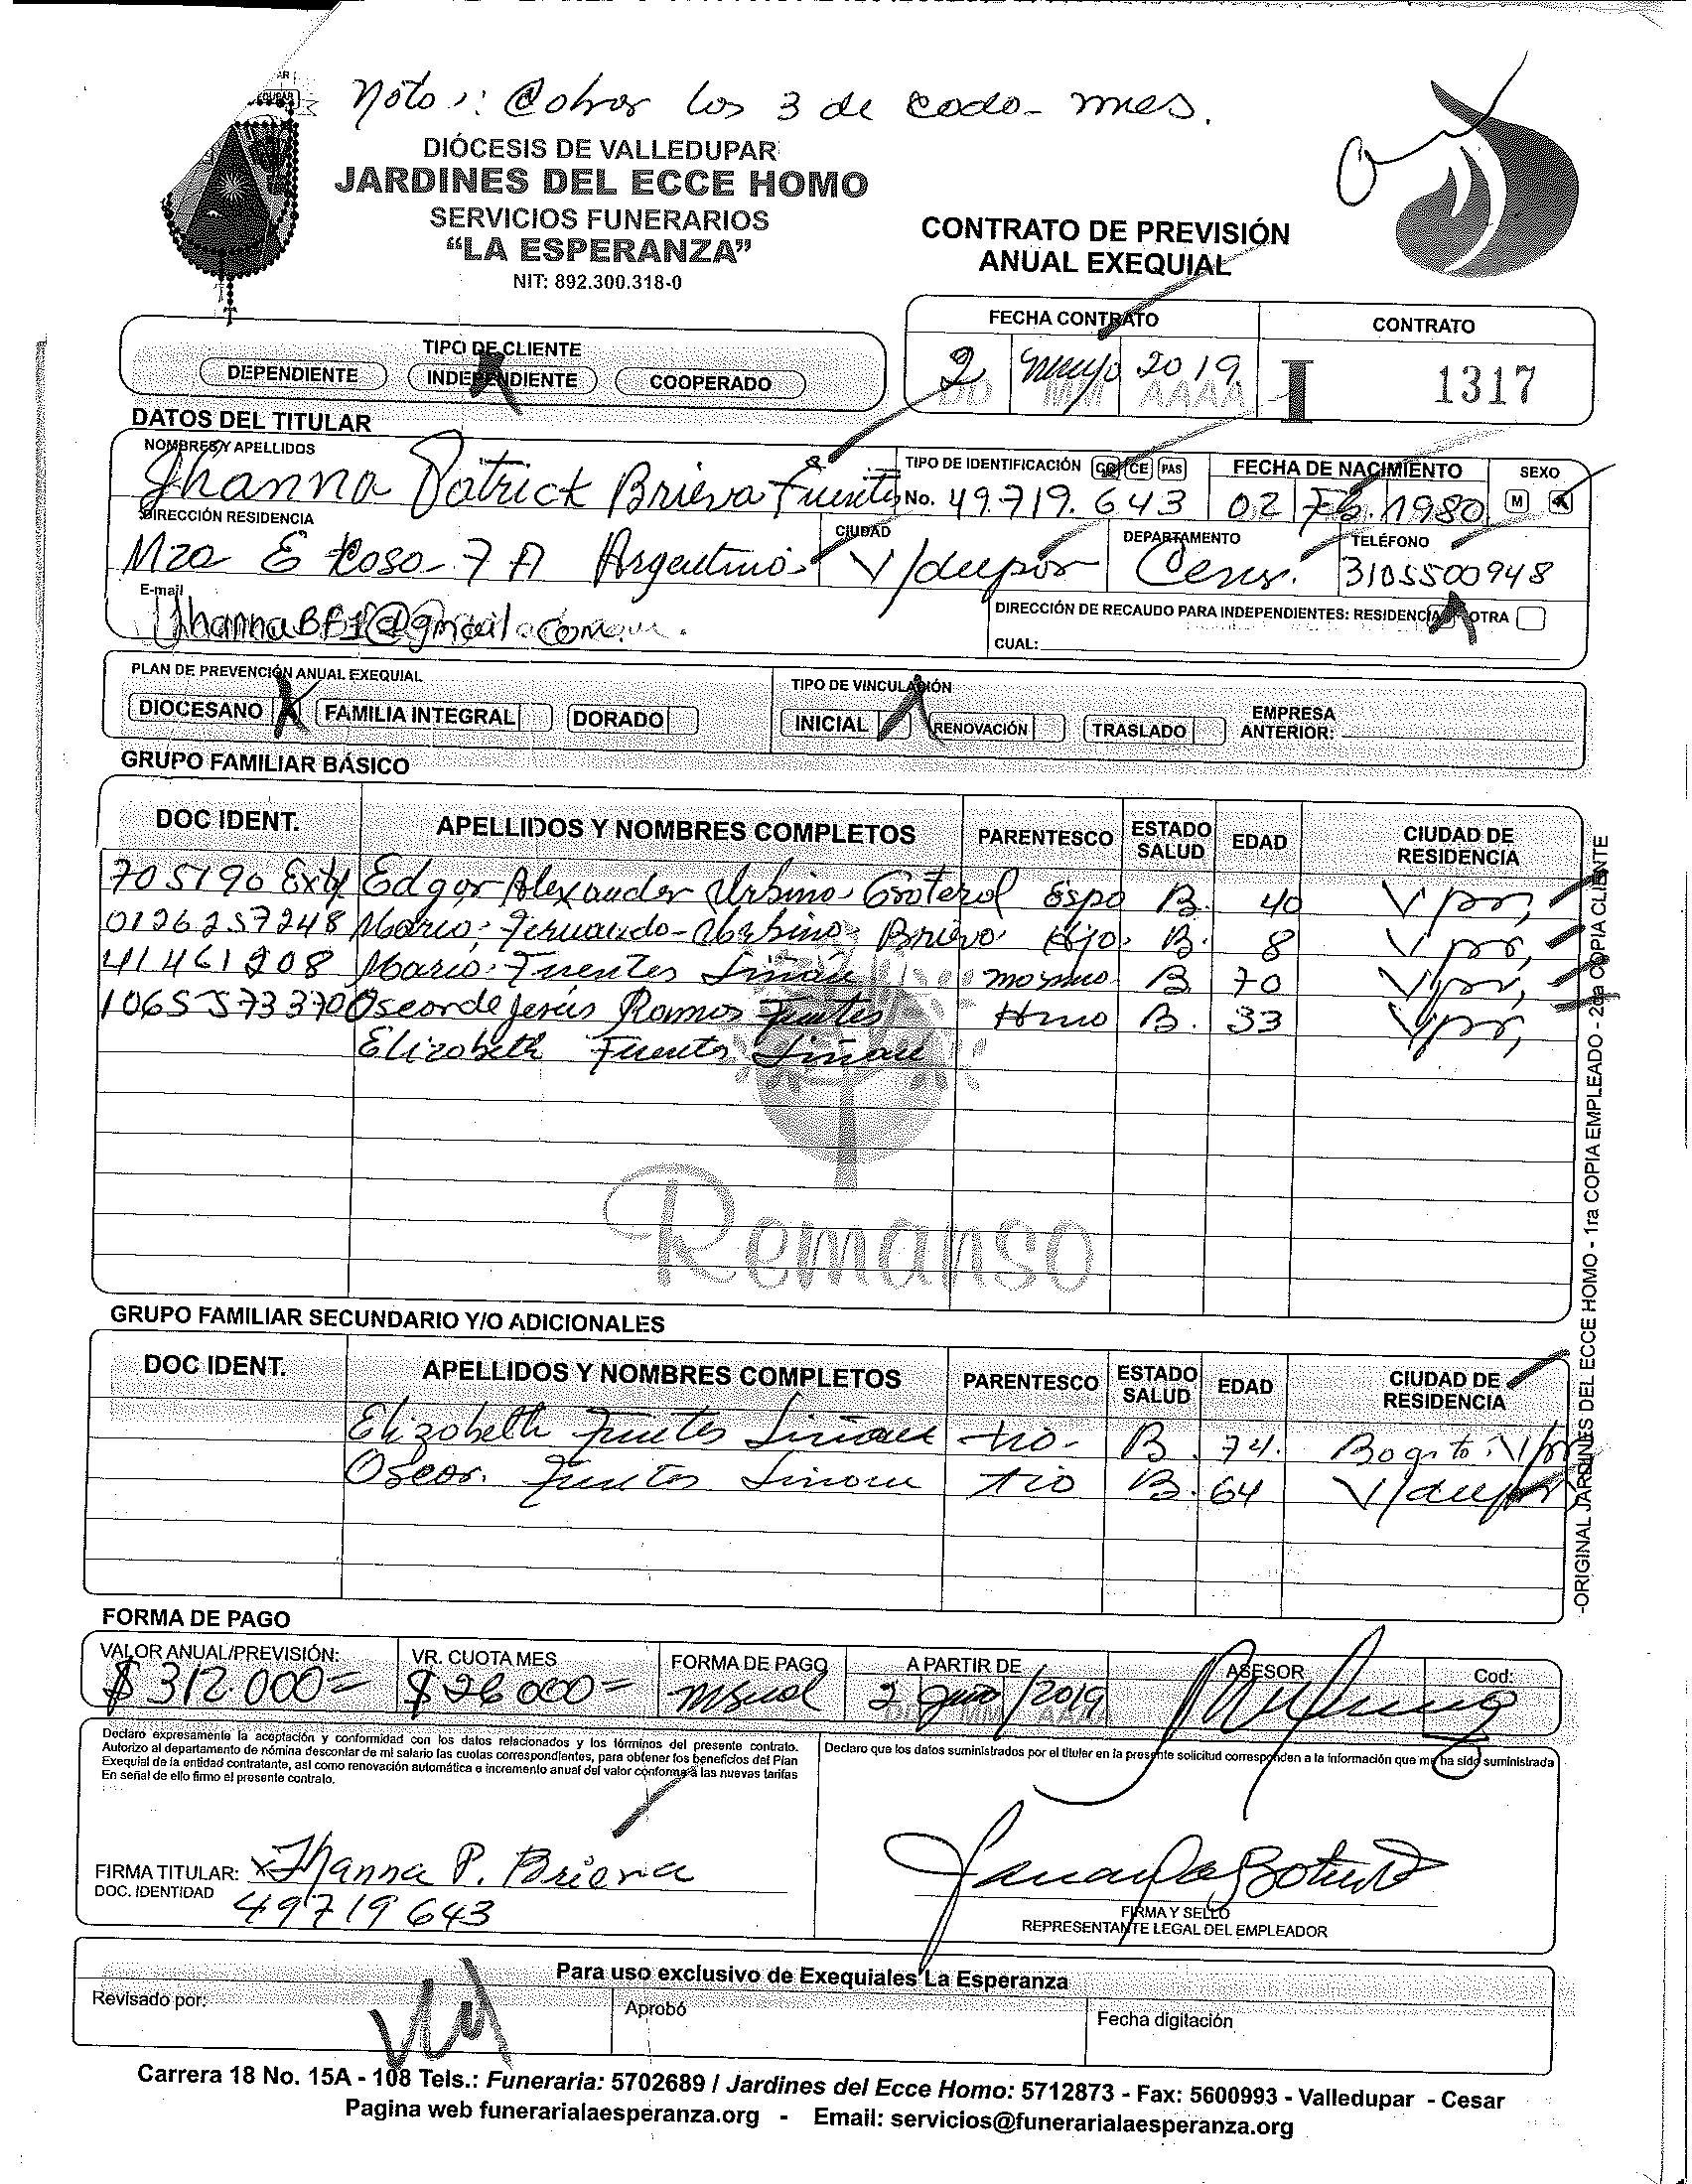 Noto: Cobrar los 3 de codo mes.
DIÓCESIS DE VALLEDUPAR
JARDINES DEL ECCE HOMO
SERVICIOS FUNERARIOS
“LA ESPERANZA”
NIT: 892.300.318-0
CONTRATO DE PREVISIÓN
ANUAL EXEQUIAL
FECHA CONTRATO CONTRATO
2 mayo 2019 I 1317
DD MM AAAA
TIPO DE CLIENTE
DEPENDIENTE INDEPENDIENTE COOPERADO
DATOS DEL TITULAR
NOMBRES Y APELLIDOS TIPO DE IDENTIFICACIÓN CC CE PAS FECHA DE NACIMIENTO SEXO
Jhanna Patrick Brieva Fuentes No. 49.719.643 02 Feb. 1980 M
DIRECCIÓN RESIDENCIA CIUDAD DEPARTAMENTO TELÉFONO
Mza E Casa 7 A Argentina V/dupar Cesar 3105500948
E-mail
JhannaBF1@gmail.com
DIRECCIÓN DE RECAUDO PARA INDEPENDIENTES: RESIDENCIA OTRA
CUAL:
PLAN DE PREVENCIÓN ANUAL EXEQUIAL TIPO DE VINCULACIÓN
DIOCESANO X FAMILIA INTEGRAL DORADO INICIAL X RENOVACIÓN TRASLADO EMPRESA ANTERIOR:
GRUPO FAMILIAR BÁSICO
DOC IDENT. APELLIDOS Y NOMBRES COMPLETOS PARENTESCO ESTADO SALUD EDAD CIUDAD DE RESIDENCIA
705190 Edgar Alexander Urbina Graterol Espo B. 40 Vpar,
0126257248 Maria Fernanda Urbina Brieva Hija B. 8 Vpar,
41461208 Maria Fuentes Liñan B 70 Vpar,
1065573370 Oscar de Jesús Ramos Fuentes Hmo B. 33 Vpar,
Elizabeth Fuentes Liñan
Remanso
GRUPO FAMILIAR SECUNDARIO Y/O ADICIONALES
DOC IDENT. APELLIDOS Y NOMBRES COMPLETOS PARENTESCO ESTADO SALUD EDAD CIUDAD DE RESIDENCIA
Elizabeth Fuentes Liñan tia B. 74. Bogota
Oscar Fuentes Liñan tio B. 64 V/dupar
FORMA DE PAGO
VALOR ANUAL/PREVISIÓN: VR. CUOTA MES FORMA DE PAGO A PARTIR DE ASESOR Cod:
$ 312.000= $ 26000= msual 2 /2019
Declaro expresamente la aceptación y conformidad con los datos relacionados y los términos del presente contrato.
Autorizo al departamento de nómina descontar de mi salario las cuotas correspondientes, para obtener los beneficios del Plan
Exequial de la entidad contratante, así como renovación automática e incremento anual del valor conforme a las nuevas tarifas
En señal de ello firmo el presente contrato.
Declaro que los datos suministrados por el titular en la presente solicitud corresponden a la información que me ha sido suministrada
FIRMA TITULAR: x Jhanna P. Brieva
DOC. IDENTIDAD 49719643
FIRMA Y SELLO
REPRESENTANTE LEGAL DEL EMPLEADOR
Para uso exclusivo de Exequiales La Esperanza
Revisado por: Aprobó Fecha digitación
Carrera 18 No. 15A - 108 Tels.: Funeraria: 5702689 / Jardines del Ecce Homo: 5712873 - Fax: 5600993 - Valledupar - Cesar
Pagina web funerarialaesperanza.org - Email: servicios@funerarialaesperanza.org
-ORIGINAL JARDINES DEL ECCE HOMO - 1ra COPIA EMPLEADO - 2da COPIA CLIENTE